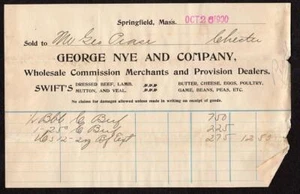 Springfield, Mass.
OCT 26 1900
Sold to Mr Geo Pease Chester
GEORGE NYE AND COMPANY,
Wholesale Commission Merchants and Provision Dealers.
SWIFT'S DRESSED BEEF, LAMB, MUTTON, AND VEAL. BUTTER, CHEESE, EGGS, POULTRY, GAME, BEANS, PEAS, ETC.
No claims for damaged allowed unless made in writing on receipt of goods.
½ Bbl C Beef 750
25# C Beef 225
12 275 12.50